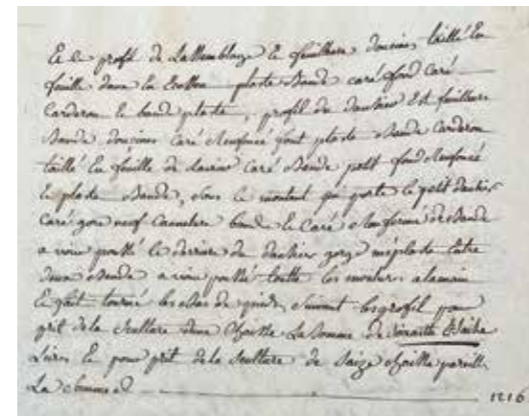 Et le profil de Lassemblage et feuillure doucine, taillé En
feuille dans la plate Bande caré fond Caré
Carderon et bande plate, profil du dossier Est feuillure
Bande doucine Caré Renfoncé font plate Bande Carderon
taillé En feuille de laurier Caré Bande petit fond Renfoncé
Et plate Bande, Sous le montant qui porte le petit
Caré neuf Canelure bande Et Caré Renfermé de Bande
a vive le derriere du dossier gorge méplate Entre
deux Bande a vive toutte les moulur a la main
Et fait tourné les Bas de pieds, Suivant les profil pour
prit de la Sculture dune Chaisse La Somme de Soixante & Saize
Livre Et pour prit dela Sculture de Saize Chaisse pareille
La Somme d 1216